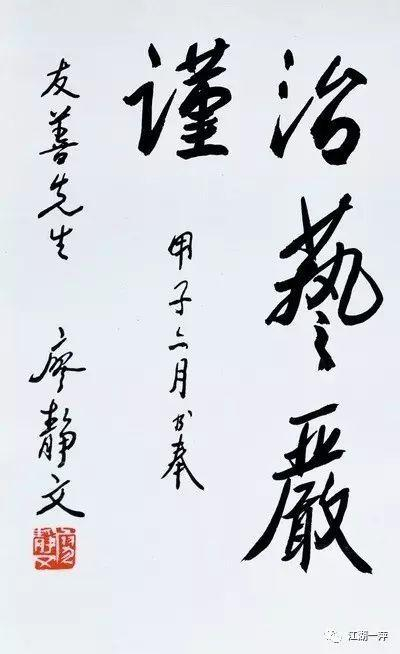 治藝嚴
謹
甲子六月书奉
友善先生
廖靜文
廖靜文
江湖一萍